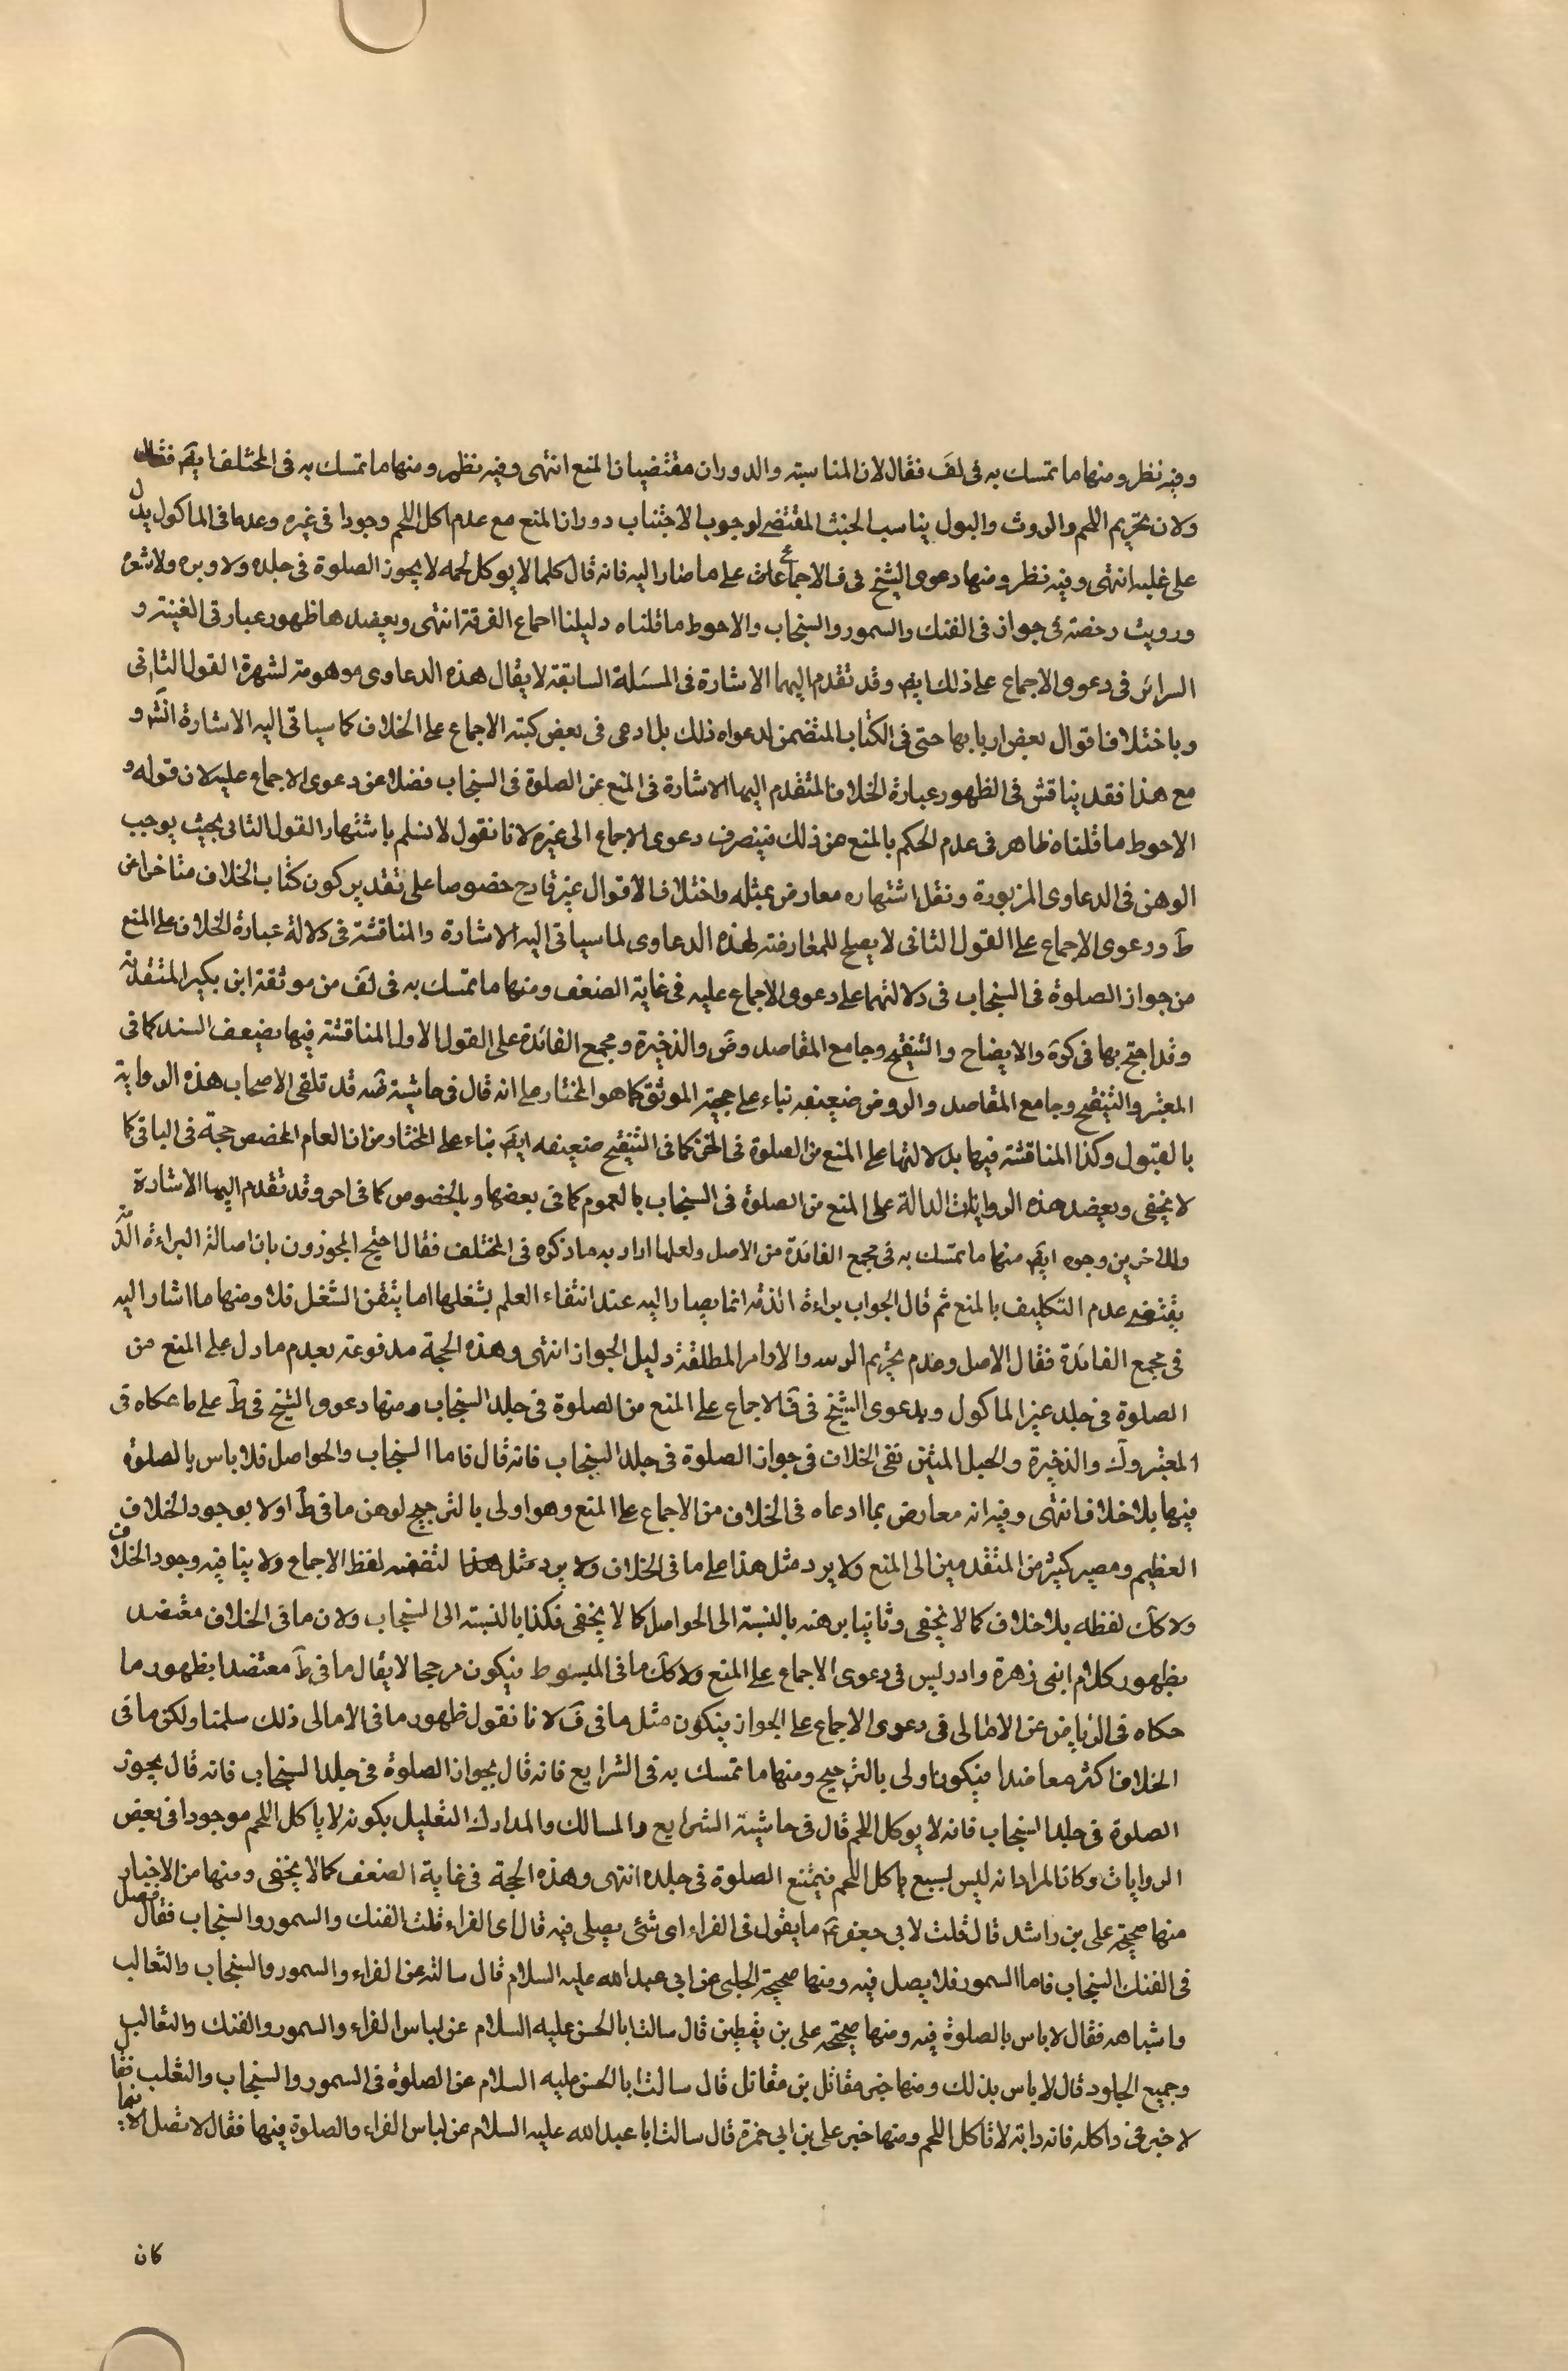 وفيه نظر ومنها ما تمسك به فى لف فقال لان المناسبة والدوران مقتضيان المنع انتهى وفيه نظر ومنها ما تمسك به فى المختلف ايضَ فقال
ولان تحريم اللحم والروث والبول يناسب الخبث المقتضى لوجوب الاجتناب دوران المنع مع عدم اكل اللحم وجودا فى غيره وعدما فى الماكول يدل
على غلبه انتهى وفيه نظر ومنها دعوى الشيخ فى ف الاجماع على ما صار اليه فانه قال كلما لا يوكل لحمه لا يجوز الصلوة فى جلده ولا وبره ولا شعره
ورويت رخصة فى جواز فى الفنك والسمور والسنجاب والاحوط ما قلناه دليلنا اجماع الفرقة انتهى ويعضدها ظهور عبارتى الغنية و
السرائر فى دعوى الاجماع على ذلك ايضَ وقد تقدم اليهما الاشارة فى المسئلة السابقة لا يقال هذه الدعاوى موهومة لشهرة القول الثانى
وباختلاف اقوال بعض اربابها حتى فى الكتاب المتضمن لدعواه ذلك بل ادعى فى بعض كتبه الاجماع على الخلاف كما سياتى اليه الاشارة انشَ و
مع هذا فقد يناقش فى الظهور عبارة الخلاف المتقدم اليها الاشارة فى المنع عن الصلوة فى السنجاب فضلا عن دعوى الاجماع عليه لان قوله و
الاحوط ما قلناه ظاهر فى عدم الحكم بالمنع من ذلك فينصرف دعوى الاجماع الى غيره لانا نقول لا نسلم باشتهار القول الثانى بحيث يوجب
الوهن فى الدعاوى المزبورة ونقل اشتهاره معارض بمثله واختلاف الاقوال غير قادح خصوصا على تقدير كون كتاب الخلاف متاخرا عن
طَ ودعوى الاجماع على القول الثانى لا يصلح للمعارضة لهذه الدعاوى لما سياتى اليه الاشارة والمناقشة فى دلالة عبارة الخلاف على المنع
من جواز الصلوة فى السنجاب فى دلالتهما على دعوى الاجماع عليه فى غاية الضعف ومنها ما تمسك به فى لف من موثقة ابن بكير المتقدمة
وقد احتج بها فى كرَة والايضاح والتنقيح وجامع المقاصد وضَ والذخيرة ومجمع الفائدة على القول الاول المناقشة فيها بضعف السند كما فى
المعتبر والتنقيح وجامع المقاصد والروض ضعيفه بناء على حجية الموثق كما هو المختار على انه قال فى حاشية ضَه قد تلقى الاصحاب هذه الرواية
بالقبول وكذا المناقشة فيها بدلالتها على المنع من الصلوة فى الخز كما فى التنقيح ضعيفه ايضَ بناء على المختار من ان العام المخصص حجة فى الباقى كما
لا يخفى ويعضد هذه الروايات الدالة على المنع من الصلوة فى السنجاب بالعموم كما فى بعضها وبالخصوص كما فى اخر وقد تقدم اليها الاشارة
وللاخرين وجوه ايضَ منها ما تمسك به فى مجمع الفائدة من الاصل ولعلها اراد به ما ذكره فى المختلف فقال احتج المجوزون بان اصالة البراءة الذمة
يقتضى عدم التكليف بالمنع ثم قال الجواب براءة الذمة انما يصار اليه عند انتفاء العلم بشغلها اما بتيقن الشغل فلا ومنها ما اشار اليه
فى مجمع الفائدة فقال الاصل وعدم تحريم الوبر والاوامر المطلقة دليل الجواز انتهى وهذه الحجة مدفوعة بعدم ما دل على المنع من
الصلوة فى جلد غير الماكول ويدعوى الشيخ فى فَ الاجماع على المنع من الصلوة فى جلد السنجاب ومنها دعوى الشيخ فى طَ على ما حكاه فى
المعتبر وكَ والذخيرة والحبل المتين نفى الخلاف فى جواز الصلوة فى جلد السنجاب فانه قال فاما السنجاب والحواصل فلا باس بالصلوة
فيها بلا خلاف انتهى وفيه انه معارض بما ادعاه فى الخلاف من الاجماع على المنع وهو اولى بالترجيح لوهن ما فى طَ اولا بوجود الخلاف
العظيم ومصير كثير من المتقدمين الى المنع ولا يرد مثل هذا على ما فى الخلاف ولا يرد مثل هذا لتضمنه لفظ الاجماع ولا ينافيه وجود الخلاف
ولا كك لفظه بلا خلاف كما لا يخفى وثانيا بوهنه بالنسبة الى الحواصل كما لا يخفى فكذا بالنسبة الى السنجاب ولان ما فى الخلاف معتضد
بظهور كلام ابنى زهرة وادريس فى دعوى الاجماع على المنع ولا كك ما فى المبسوط فيكون مرجحا لا يقال ما فى طَ معتضد بظهور ما
حكاه فى الرياض عن الامالى فى دعوى الاجماع على الجواز فيكون مثل ما فى فَ لانا نقول ظهور ما فى الامالى ذلك سلمنا ولكن ما فى
الخلاف اكثر معاضدا فيكون اولى بالترجيح ومنها ما تمسك به فى الشرايع فانه قال بجواز الصلوة فى جلد السنجاب فانه قال يجوز
الصلوة فى جلد السنجاب فانه لا يوكل اللحم قال فى حاشية الشرايع والمسالك والمدارك التعليل بكونه لا ياكل اللحم موجودا فى بعض
الروايات وكان المراد انه ليس لسبع ياكل اللحم فيمتنع الصلوة فى جلده انتهى وهذه الحجة فى غاية الضعف كما لا يخفى ومنها من الاخبار
منها صحيحة على بن راشد قال قلت لابى جعفر عَ ما يقول فى الفراء اى شئى يصلى فيه قال اى الفراء قلت الفنك والسمور والسنجاب فقال فصل
فى الفنك السنجاب فاما السمور فلا يصل فيه ومنها صحيحة الحلبى عن ابى عبد الله عليه السلام قال سالته عن الفراء والسمور والسنجاب والثعالب
واشباهه فقال لا باس بالصلوة فيه ومنها صحيحة على بن يقطين قال سالت ابا الحسن عليه السلام عن لباس الفراء والسمور والفنك والثعالب
وجميع الجلود قال لا باس بذلك ومنها خبر مقاتل بن مقاتل قال سالت ابا الحسن عليه السلام عن الصلوة فى السمور والسنجاب والثعلب فقال
لا خير فى ذا كله فانه دابة لا تاكل اللحم ومنها خبر على بن ابى حمزة قال سالت ابا عبد الله عليه السلام عن لباس الفراء والصلوة فيها فقال لا تصل الا فيما
كان